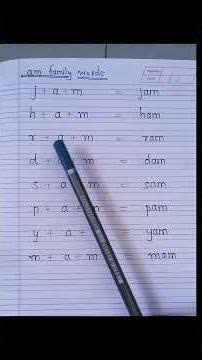 am family words
j + a + m = jam
h + a + m = ham
r + a + m = ram
d + m = dam
s + a m = sam
p + a + m = pam
y + a + m = yam
m + a + m = mam